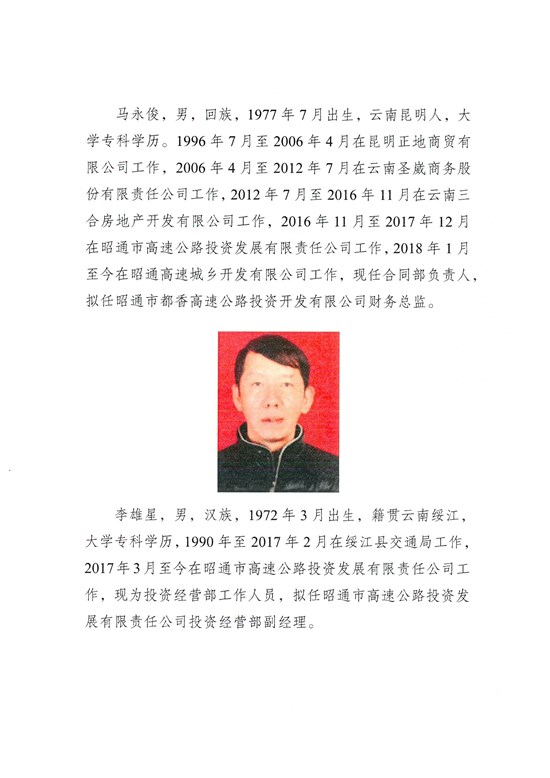 马永俊，男，回族，1977 年 7 月出生，云南昆明人，大
学专科学历。1996 年 7 月至 2006 年 4 月在昆明正地商贸有
限公司工作，2006 年 4 月至 2012 年 7 月在云南圣崴商务股
份有限责任公司工作，2012 年 7 月至 2016 年 11 月在云南三
合房地产开发有限公司工作，2016 年 11 月至 2017 年 12 月
在昭通市高速公路投资发展有限责任公司工作，2018 年 1 月
至今在昭通高速城乡开发有限公司工作，现任合同部负责人，
拟任昭通市都香高速公路投资开发有限公司财务总监。
李雄星，男，汉族，1972 年 3 月出生，籍贯云南绥江，
大学专科学历，1990 年至 2017 年 2 月在绥江县交通局工作，
2017 年 3 月至今在昭通市高速公路投资发展有限责任公司工
作，现为投资经营部工作人员，拟任昭通市高速公路投资发
展有限责任公司投资经营部副经理。